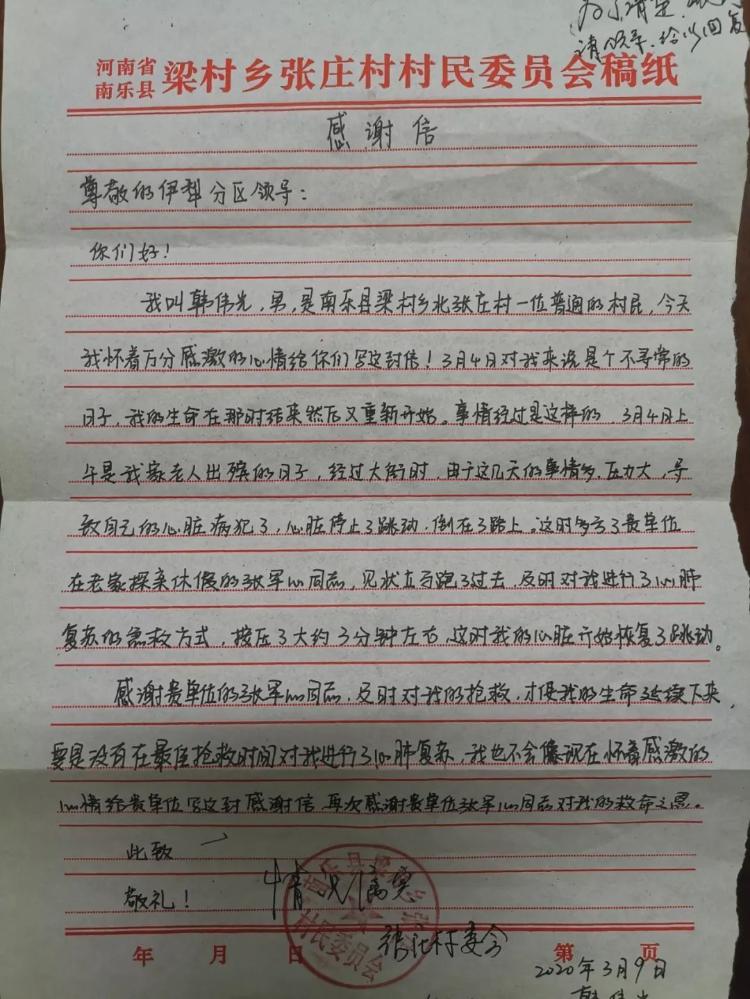 请领导给以回复
河南省
南乐县 梁村乡张庄村村民委员会稿纸
感谢信
尊敬的伊犁分区领导：
你们好！
我叫韩伟光，男，是南乐县梁村乡北张庄村一位普通的村民，今天
我怀着万分感激的心情给你们写这封信！3月4日对我来说是个不寻常的
日子，我的生命在那时结束然后又重新开始。事情经过是这样的，3月4日上
午是我家老人出殡的日子，经过大街时，由于这几天的事情多，压力大，导
致自己的心脏病犯了，心脏停止了跳动，倒在了路上。这时多亏了贵单位
在老家探亲休假的张军心同志，见状立马跑了过去，及时对我进行了心肺
复苏的急救方式，按压了大约3分钟左右，这时我的心脏开始恢复了跳动。
感谢贵单位的张军心同志，及时对我的抢救，才使我的生命延续下来，
要是没有在最佳抢救时间对我进行了心肺复苏，我也不会像现在怀着感激的
心情给贵单位写这封感谢信，再次感谢贵单位张军心同志对我的救命之恩。
此致
敬礼！
情况属实
村民委员会
村委会
年 月 日 第 页
2020年3月9日